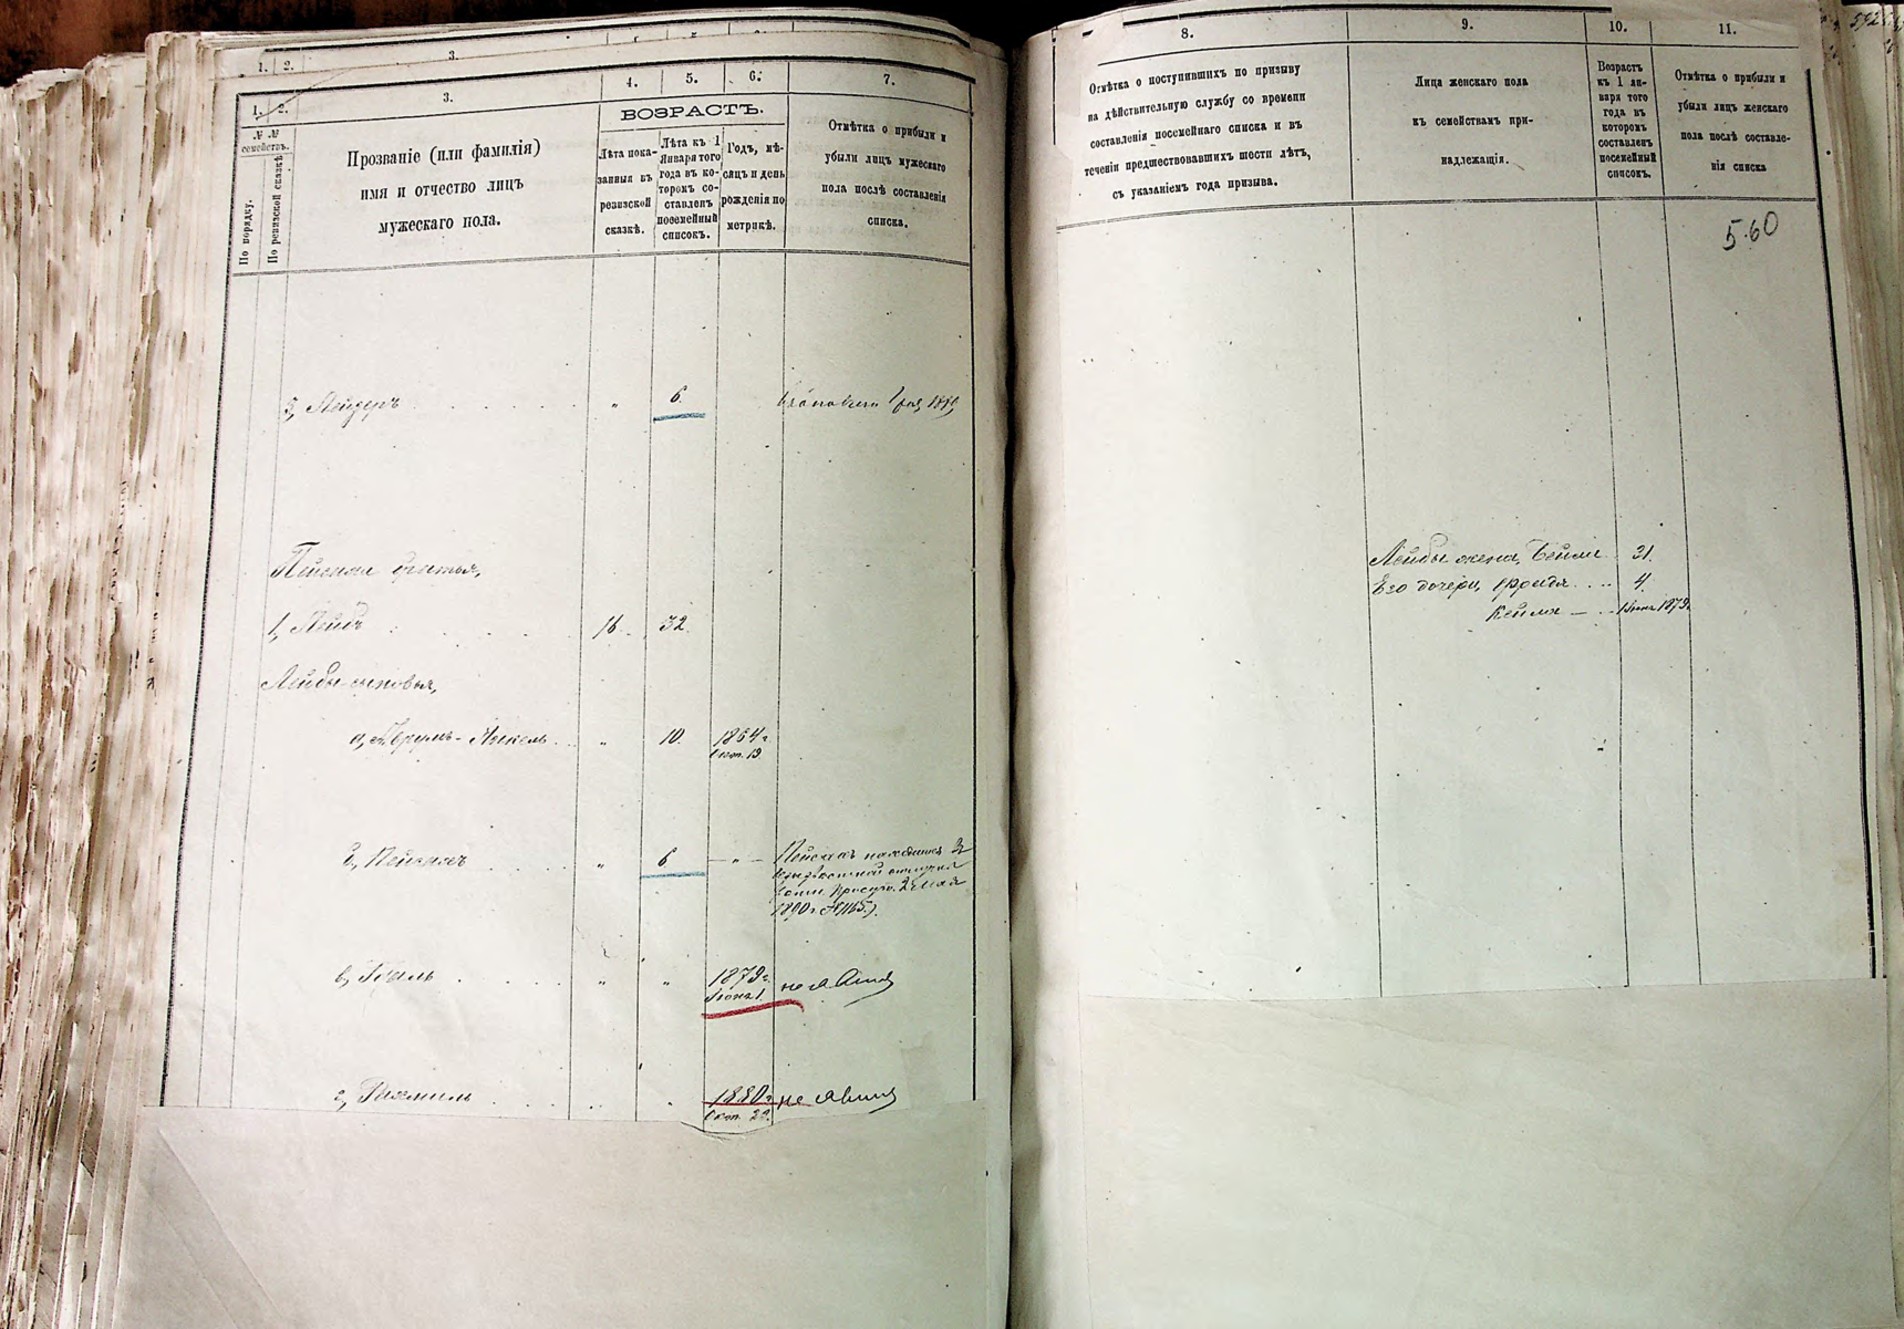 1. 2. 3.
1. 2. 3. 4. 5. 6. 7.
№ №
семействъ.
По порядку.
По ревизской сказкѣ
Прозваніе (или фамилія)
имя и отчество лицъ
мужескаго пола.
ВОЗРАСТЪ.
Лѣта пока-
занныя въ
ревизской
сказкѣ.
Лѣта къ 1
Января того
года въ ко-
торомъ со-
ставленъ
посемейный
списокъ.
Годъ, мѣ-
сяцъ и день
рожденія по
метрикѣ.
Отмѣтка о прибыли и
убыли лицъ мужескаго
пола послѣ составленія
списка.
3, Лейзеръ " 6.
братья,
1, Лейба 16 32.
Лейбы сыновья,
а, Аврумъ-Янкель " 10. 1864 г.
Окт. 19
б, Пейсахъ " 6 — " — Пейсахъ находится
1890 г. № 1165.)
в, " " 1879 г. не явился
Іюня 1.
г, Рахмиль 1880 г. не явился
Окт. 20.
8. 9. 10. 11.
Отмѣтка о поступившихъ по призыву
на дѣйствительную службу со времени
составленія посемейнаго списка и въ
теченіи предшествовавшихъ шести лѣтъ,
съ указаніемъ года призыва.
Лица женскаго пола
къ семействамъ при-
надлежащія.
Возрастъ
къ 1 ян-
варя того
года въ
которомъ
составленъ
посемейный
списокъ.
Отмѣтка о прибыли и
убыли лицъ женскаго
пола послѣ составле-
нія списка
560
Лейбы жена, Бейля 31.
Его дочери, Фрейда 4.
Кейля — 1 Іюня 1879 г.